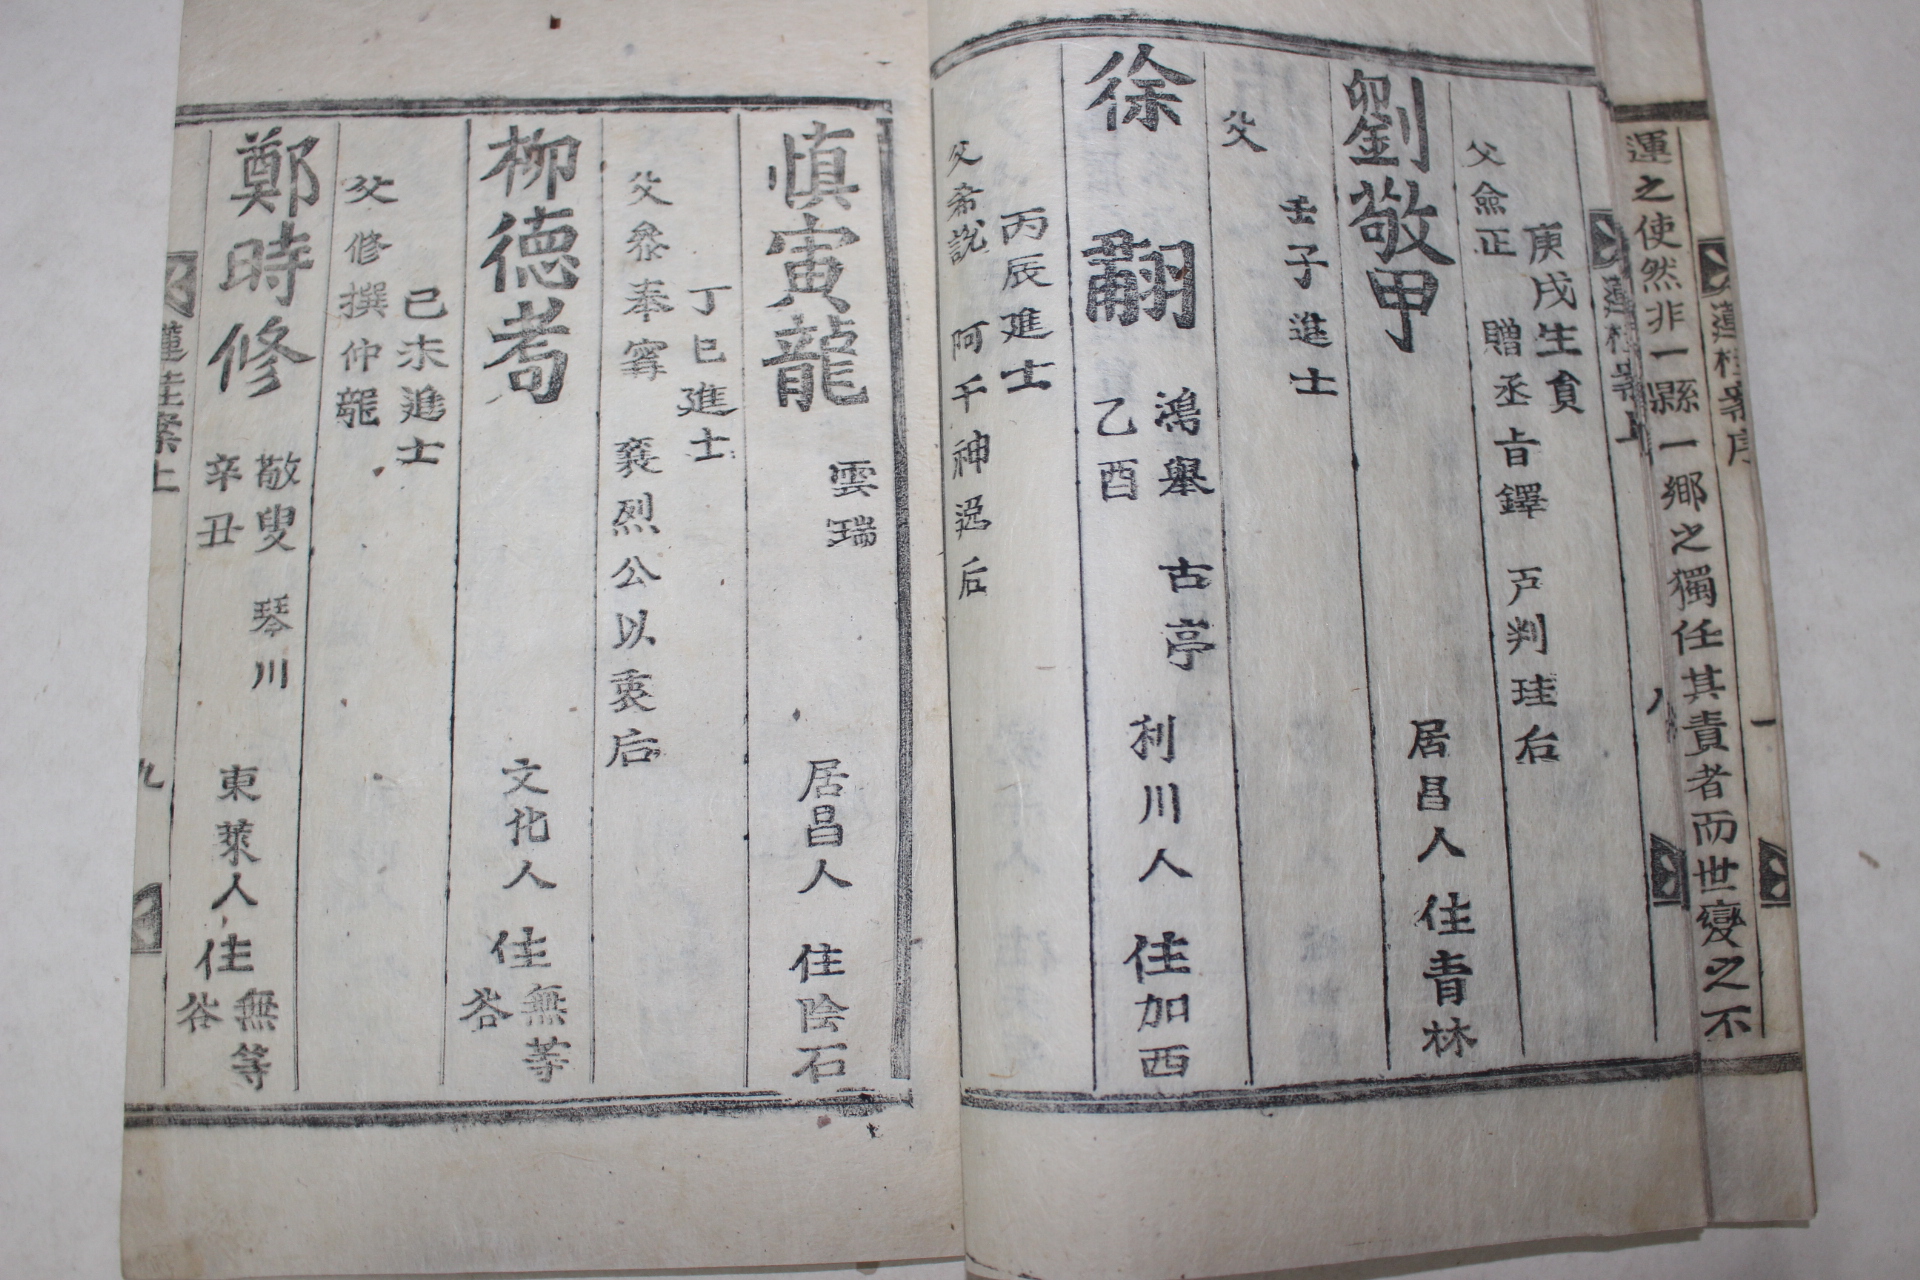 蓮桂案序
一
運之使然非一縣一鄕之獨任其責者而世變之不
蓮桂案上
八
庚戌生貟
父僉正 贈丞旨鐸 戶判珪后
劉敬甲 居昌人 住青林
壬子進士
父
徐翮 鴻擧 古亭 乙酉 利川人 住加西
丙辰進士
父希說 阿干神逸后
愼寅龍 雲瑞 居昌人 住陰石
丁巳進士
父叅奉寗 襄烈公以衷后
柳德耈 文化人 住無等谷
己未進士
父修撰仲龍
鄭時修 敬叟 琴川 辛丑 東萊人 住無等谷
蓮桂案上
九